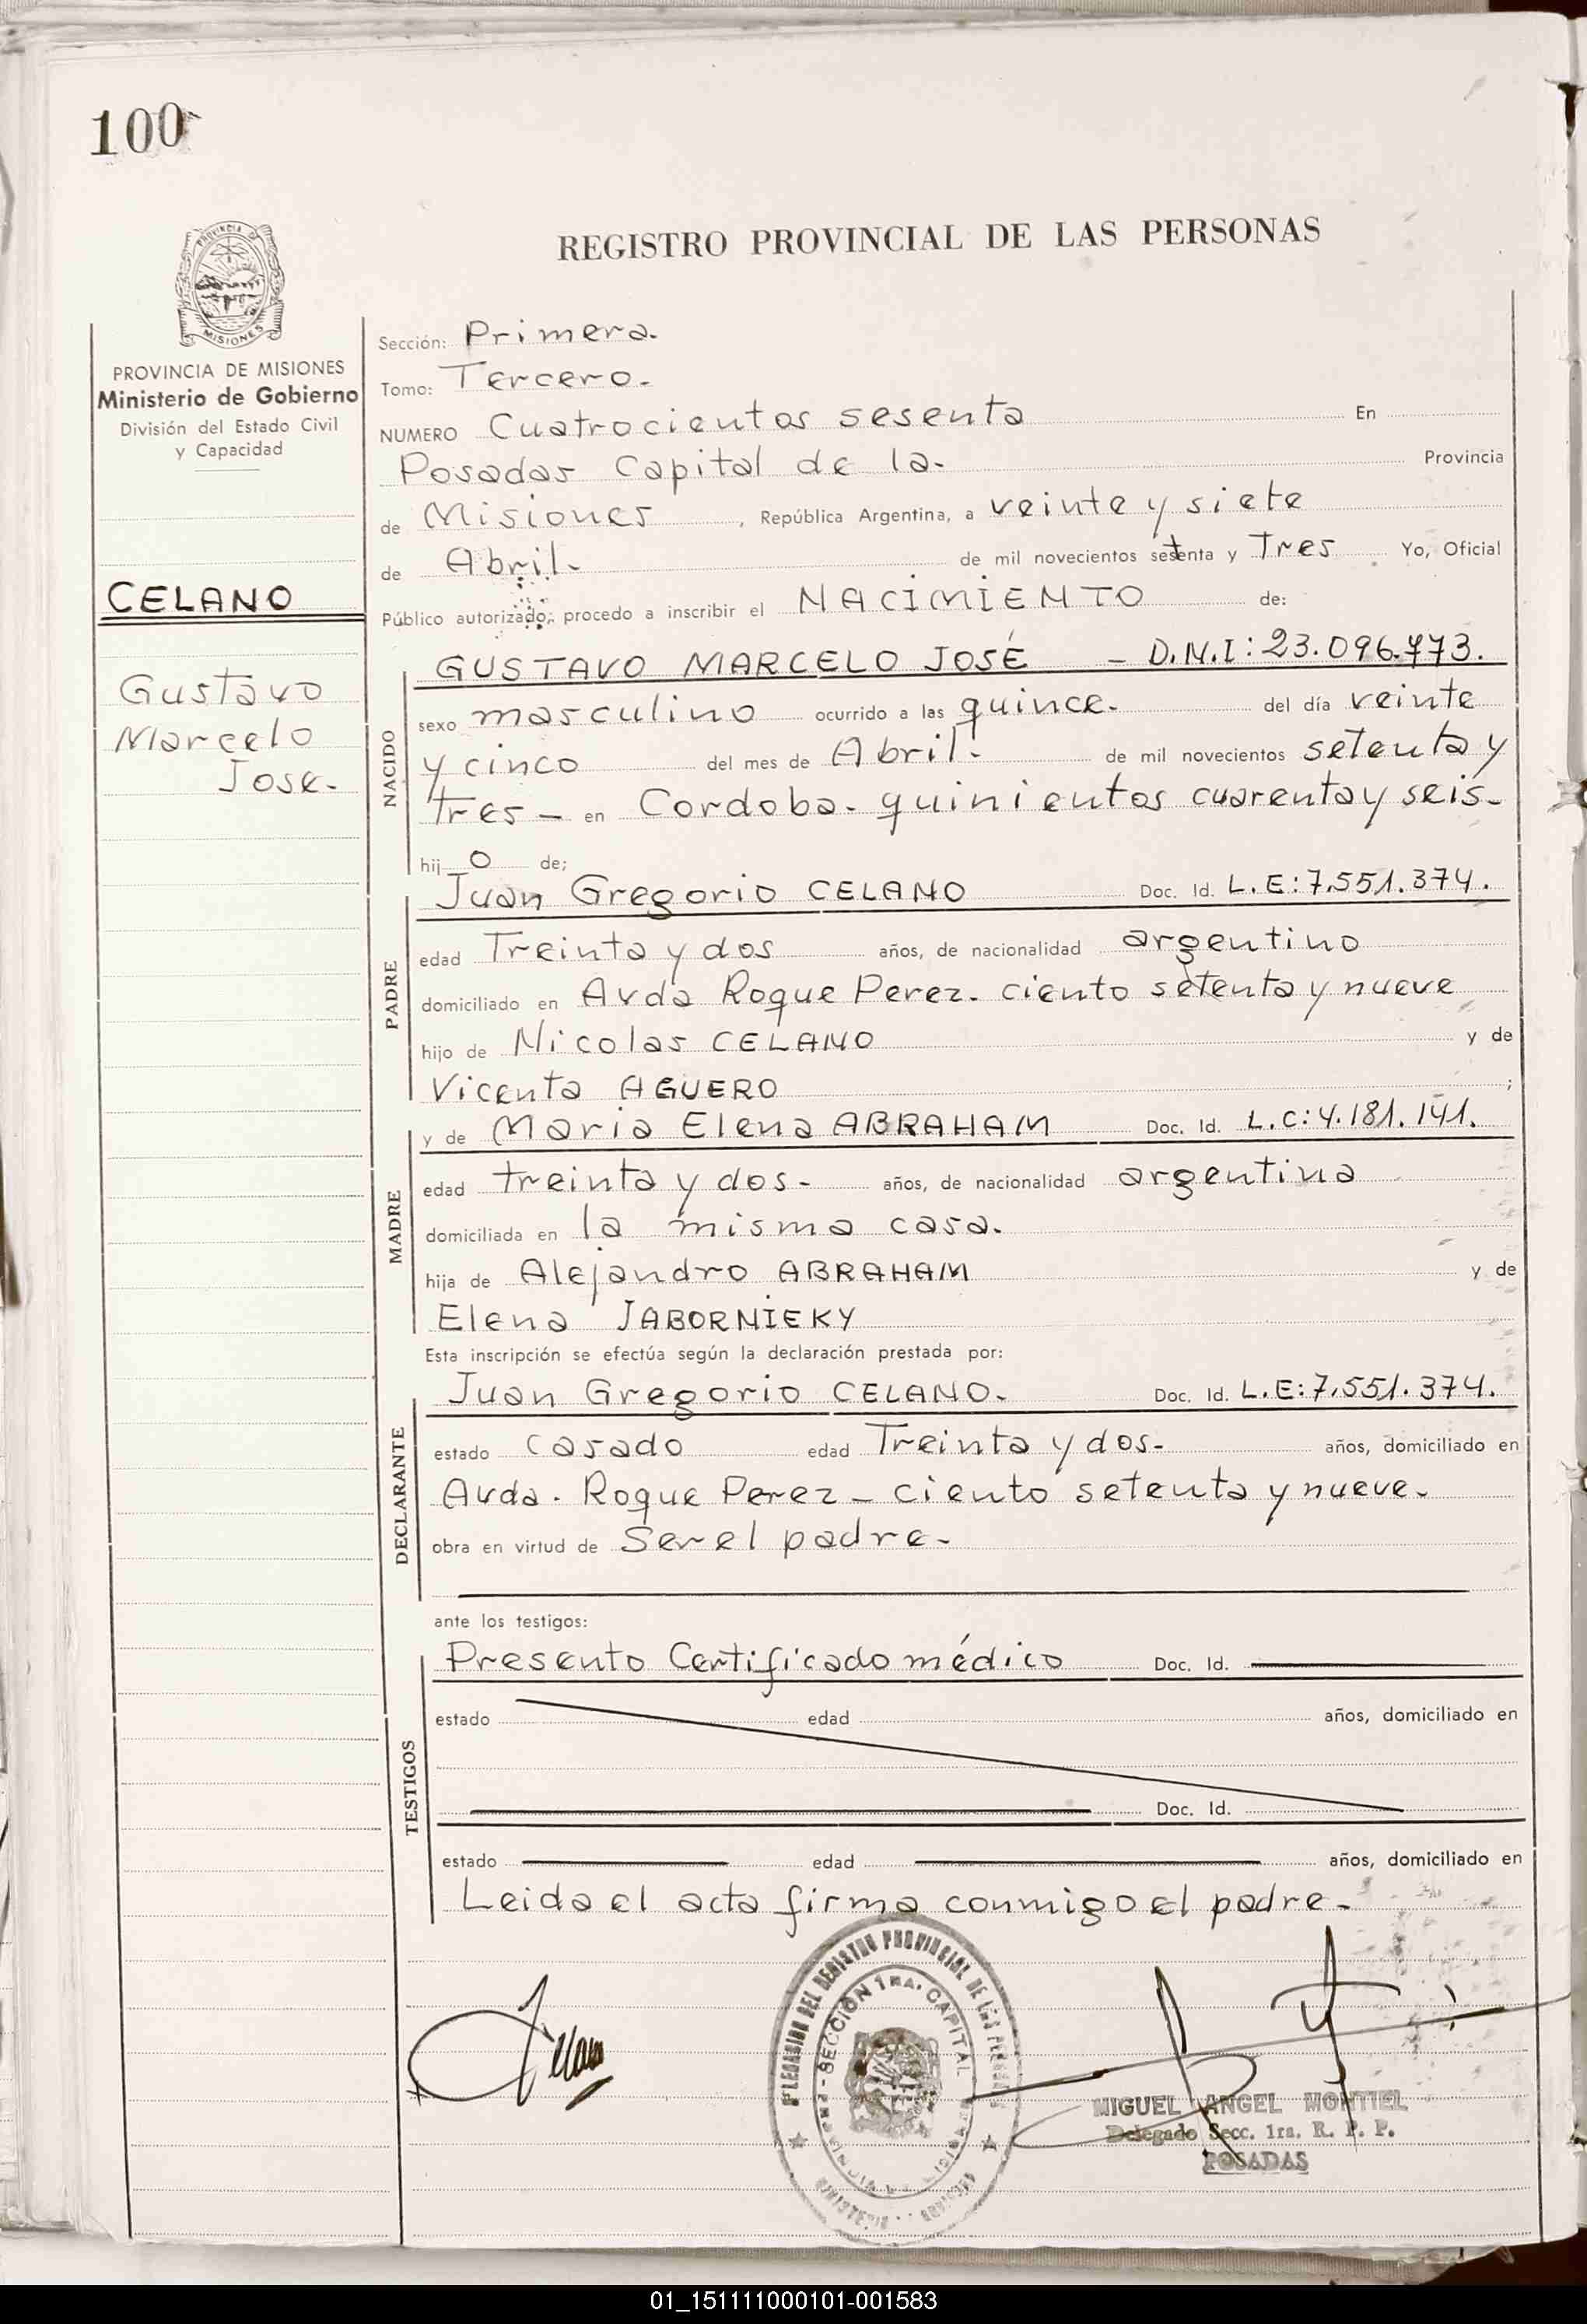 100
PROVINCIA DE
MISIONES
PROVINCIA DE MISIONES
Ministerio de Gobierno
División del Estado Civil
y Capacidad
CELANO
Gustavo
Marcelo
Jose.
REGISTRO PROVINCIAL DE LAS PERSONAS
Sección: Primera.
Tomo: Tercero.
NUMERO Cuatrocientos sesenta En
Posadas Capital de la. Provincia
de Misiones, República Argentina, a veinte y siete
de Abril. de mil novecientos setenta y Tres Yo, Oficial
Público autorizado, procedo a inscribir el NACIMIENTO de:
NACIDO
GUSTAVO MARCELO JOSÉ - D.N.I: 23.096.773.
sexo masculino ocurrido a las quince. del día veinte
y cinco del mes de Abril. de mil novecientos setenta y
tres - en Cordoba. quinientos cuarenta y seis.
hij o de;
PADRE
Juan Gregorio CELANO Doc. Id. L.E: 7.551.374.
edad Treinta y dos años, de nacionalidad argentino
domiciliado en Avda Roque Perez. ciento setenta y nueve
hijo de Nicolas CELANO y de
Vicenta AGUERO ;
MADRE
y de Maria Elena ABRAHAM Doc. Id. L.C: 4.181.141.
edad treinta y dos. años, de nacionalidad argentina
domiciliada en la misma casa.
hija de Alejandro ABRAHAM y de
Elena JABORNIEKY
Esta inscripción se efectúa según la declaración prestada por:
DECLARANTE
Juan Gregorio CELANO. Doc. Id. L.E: 7.551.374.
estado casado edad Treinta y dos. años, domiciliado en
Avda. Roque Perez - ciento setenta y nueve.
obra en virtud de Ser el padre.
ante los testigos:
TESTIGOS
Presento Certificado médico Doc. Id.
estado edad años, domiciliado en
Doc. Id.
estado edad años, domiciliado en
Leida el acta firma conmigo el padre.
Celano
DELEGACION DEL REGISTRO PROVINCIAL DE LAS PERSONAS
SECCIÓN 1RA. CAPITAL
MIGUEL ANGEL MONTIEL
Delegado Secc. 1ra. R. P. P.
POSADAS
01_151111000101-001583